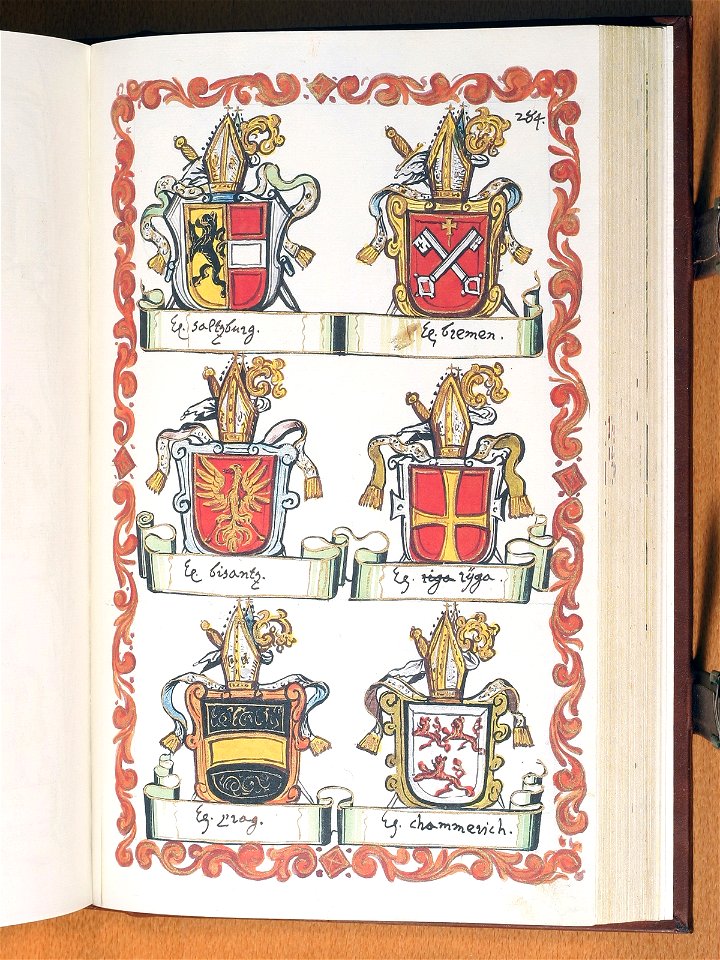 284.
Eq. saltzburg.
Eq. bremen.
Eq. bisantz.
Eq. riga rÿga.
Eq. prag.
Eq. chammerich.